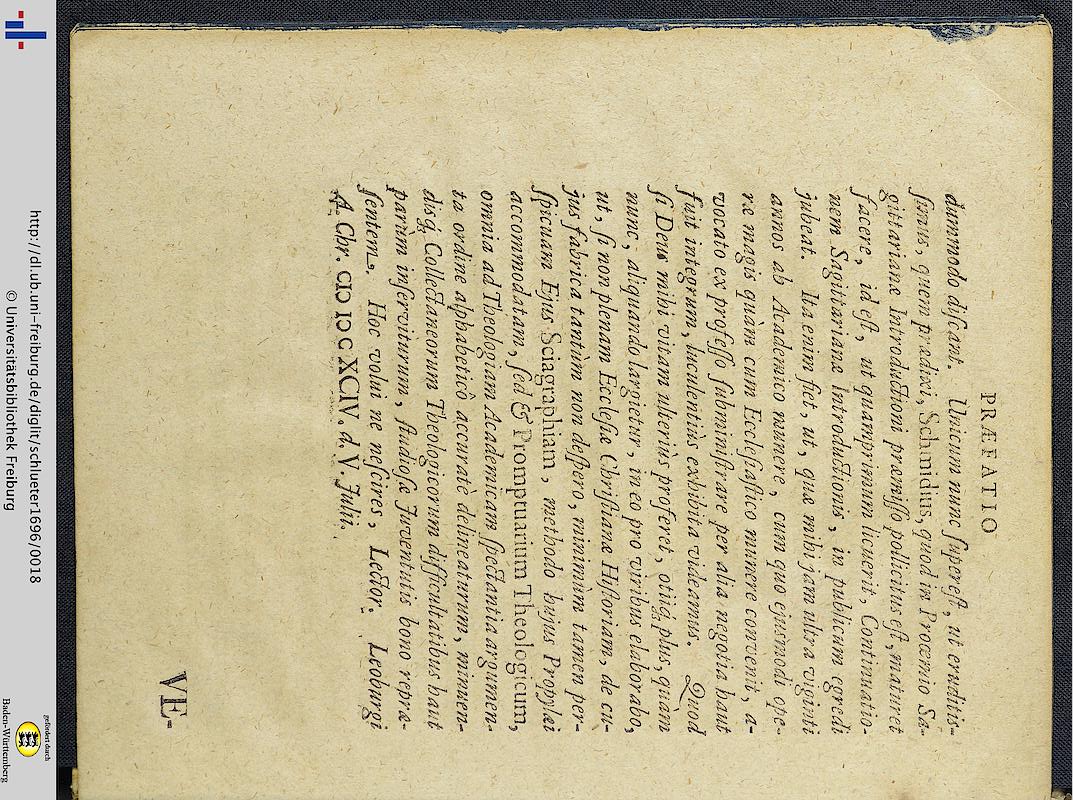 PRÆFATIO
dummodo diſcant. Unicum nunc ſupereſt, ut eruditis-
ſimus, quem prædixi, Schmidius, quod in Procemio Sa-
gittarianæ Introductioni præmiſſo pollicitus eſt, maturet
facere, id eſt, ut quamprimum licuerit, Continuatio-
nem Sagittarianæ Introductionis, in publicum egredi
jubeat. Ita enim fiet, ut, quæ mihi jam ultra viginti
annos ab Academico munere, cum quo ejusmodi ope-
ræ magis quàm cum Eccleſiaſtico munere convenit, a-
vocato ex profeſſo ſubminiſtrare per alia negotia haut
fuit integrum, luculentiùs exhibita videamus. Quod
ſi Deus mihi vitam ulteriùs proferet, otiiq́; plus, quam
nunc, aliquando largietur, in eo pro viribus elaborabo,
ut, ſi non plenam Eccleſiæ Chriſtianæ Hiſtoriam, de cu-
jus fabrica tantùm non deſpero, minimùm tamen per-
ſpicuam Ejus Sciagraphiam, methodo hujus Propylæi
accommodatam, ſed & Promptuarium Theologicum,
omnia ad Theologiam Academicam ſpectantia argumen-
ta ordine alphabeticô accuratè delineaturum, minuen-
disq́; Collectaneorum Theologicorum difficultatibus haut
parùm inſerviturum, ſtudioſæ Juventutis bono repræ-
ſentem. Hoc volui ne neſcires, Lector. Leoburgi
A. Chr. CIↃ IↃ C XCIV. d. V. Julii.
VE-
http://dl.ub.uni-freiburg.de/diglit/schlueter1696/0018
© Universitätsbibliothek Freiburg
gefördert durch
Baden-Württemberg